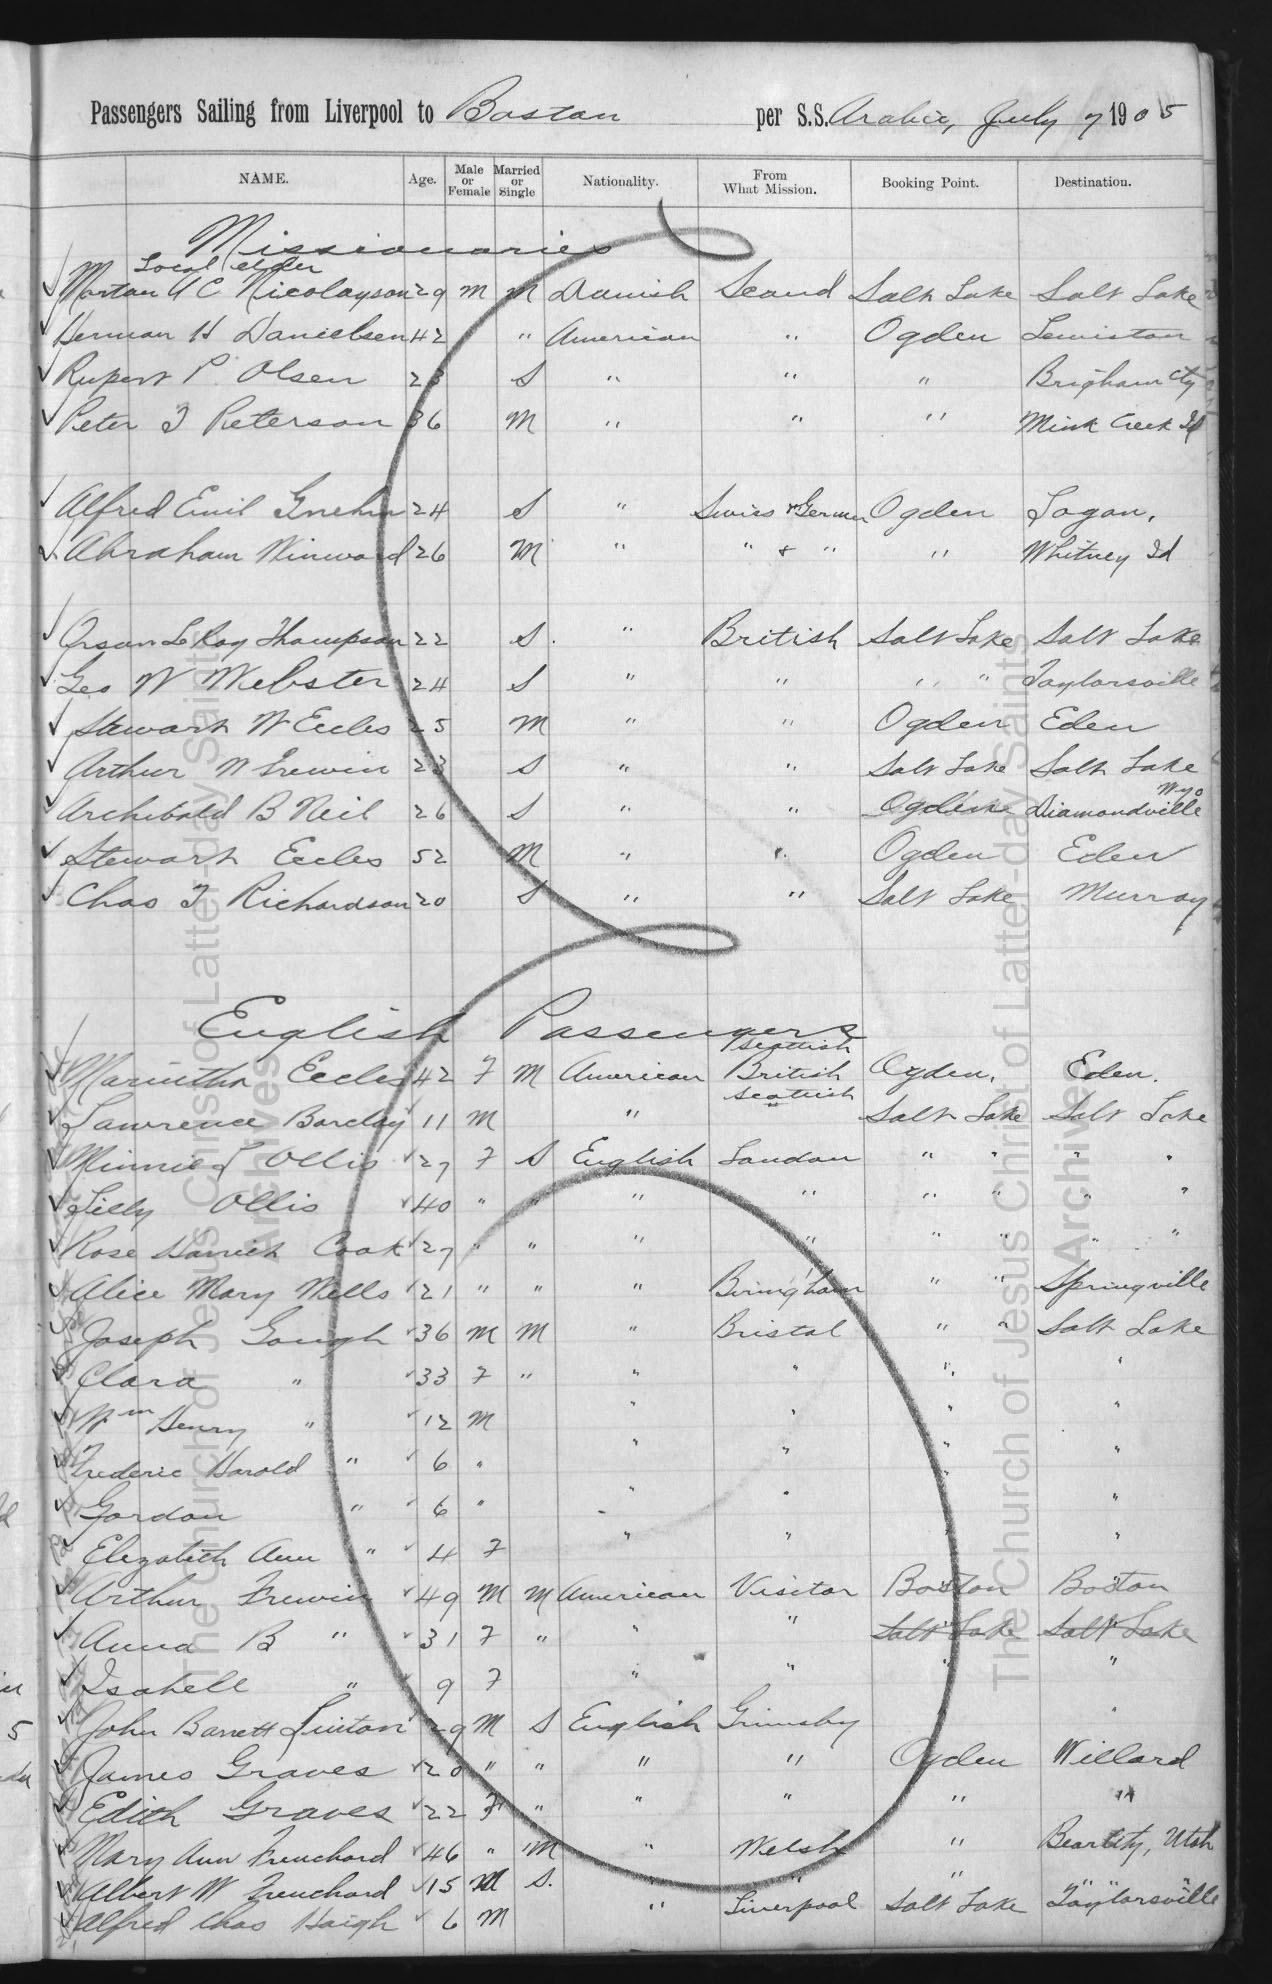 Passengers Sailing from Liverpool to Boston per S.S. Arabic, July 7 1905
NAME. Age. Male or Female Married or Single Nationality. From What Mission. Booking Point. Destination.
Missionaries
Local elder
Mortan A C Nicolayson 29 m m Danish Scand Salt Lake Salt Lake
Herman H Danielsen 42 " American " Ogden Lewiston
Rupert P. Olsen 23 S " " " Brigham Cty
Peter T Peterson 36 M " " " Mink Creek Id
Alfred Emil Gnehm 24 S " Swiss & German Ogden Logan,
Abraham Winward 26 M " " & " " Whitney Id
Orson LeRoy Thompson 22 S. " British Salt Lake Salt Lake
Geo W Webster 24 S " " " " Taylorsville
Stewart W Eccles 25 M " " Ogden Eden
Arthur N Frewin 23 S " " Salt Lake Salt Lake
Archibald B Neil 26 S " " Ogden Diamondville Wyo
Stewart Eccles 52 M " " Ogden Eden
Chas T Richardson 20 S " " Salt Lake Murray
English Passengers
Scottish
Marintha Eccles 42 F M American British Ogden, Eden.
Scottish
Lawrence Barclay 11 M " " Salt Lake Salt Lake
Minnie L Ollis 27 F S English London " " " "
Lilly Ollis 40 " " " " " " " "
Rose Harriet Cook 27 " " " " " " " "
Alice Mary Wells 21 " " " Biringham " " Springville
Joseph Gough 36 M M " Bristol " " Salt Lake
Clara " 33 F " " " " "
Wm Henry " 12 M " " " "
Frederic Harold " 6 " " " " "
Gordon " 6 " " " " "
Elizabeth Ann " 4 F " " " "
Arthur Frewin 49 M M American Visitor Boston Boston
Anna B " 31 F " " " Salt Lake Salt Lake
Isabell " 9 F " " " "
John Barrett Linton 29 M S English Grimsby " "
James Graves 20 " " " " Ogden Willard
Edith Graves 22 F " " " " "
Mary Ann Trenchard 46 " M " Welsh " Bear City, Utah
Albert W Trenchard 15 M S. " " " " "
Alfred Chas Haigh 6 M " Liverpool Salt Lake Taylorsville
The Church of Jesus Christ of Latter-day Saints
Archives
The Church of Jesus Christ of Latter-day Saints
Archives